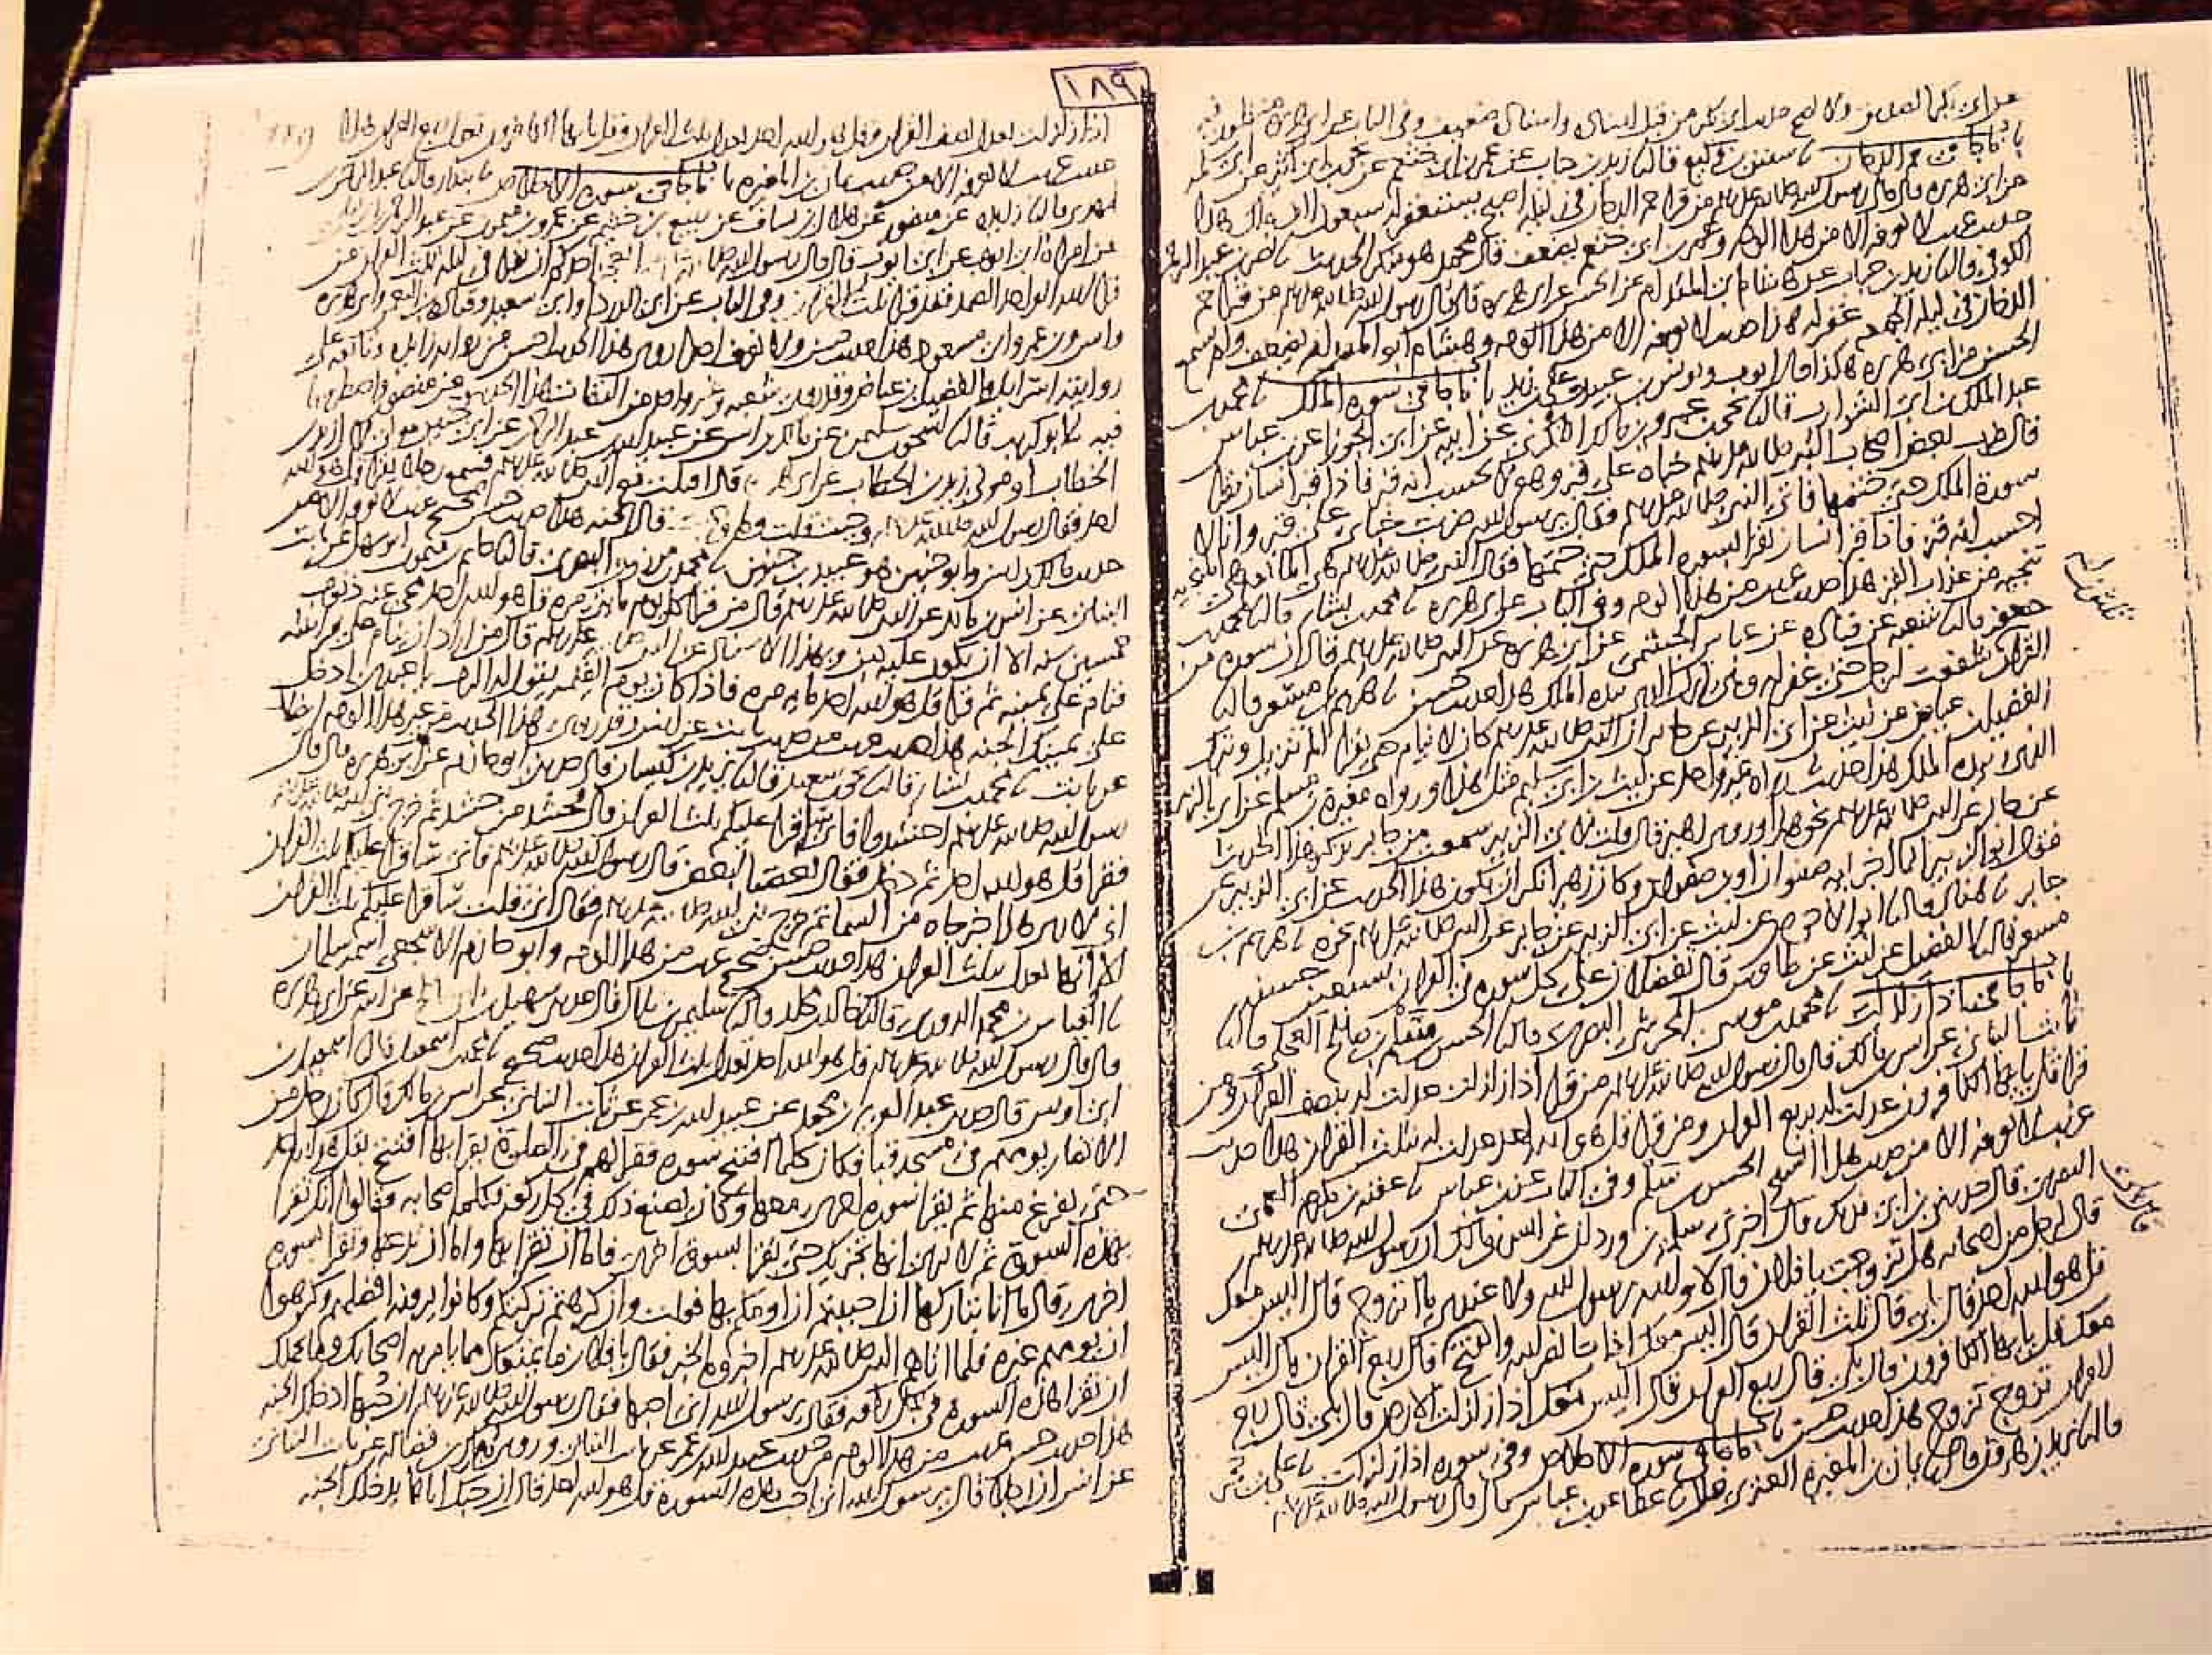 ١٨٩
عن ابي بكر الصديق ولا يصح حديث ابي بكر من قبل اسناده واسناده ضعيف وفي الباب عن ابي هريرة منظور فيه
باب ما جا في حم الدخان نا سفين بن وكيع قال نا زيد بن حباب عن عمر بن ابي خثعم عن يحيى بن ابي كثير عن ابي سلمه
عن ابي هريره قال قال رسول الله صلى الله عليه وسلم من قرا حم الدخان في ليله اصبح يستغفر له سبعون الف ملك هذا
حديث غريب لا نعرفه الا من هذا الوجه وعمر بن ابي خثعم يضعف قال محمد هو منكر الحديث نا نصر بن عبد الرحمن
الكوفي قال نا زيد بن حباب عن هشام ابي المقدام عن الحسن عن ابي هريره قال قال رسول الله صلى الله عليه وسلم من قرا حم
الدخان في ليله الجمعه غفر له هذا حديث لا نعرفه الا من هذا الوجه وهشام ابو المقدام يضعف ولم يسمع
الحسن من ابي هريره هكذا قال ايوب ويونس بن عبيد وعلي بن زيد باب ما جا في سوره الملك نا محمد بن
عبد الملك بن ابي الشوارب قال نا يحيى بن عمرو بن مالك النكري عن ابيه عن ابي الجوزا عن ابن عباس
قال ضرب بعض اصحاب النبي صلى الله عليه وسلم خباه على قبر وهو لا يحسب انه قبر فاذا قبر انسان يقرا
سورة الملك حتى ختمها فاتى النبي صلى الله عليه وسلم فقال يرسول الله ضربت خباي على قبر وانا لا
احسب انه قبر فاذا فيه انسان يقرا سوره الملك حتى ختمها فقال النبي صلى الله عليه وسلم هي المانعه هي المنجيه
تنجيه من عذاب القبر هذا حديث غريب من هذا الوجه وفي الباب عن ابي هريره نا محمد بن بشار قال نا محمد بن
جعفر قال نا شعبه عن قتاده عن عباس الجشمي عن ابي هريره عن النبي صلى الله عليه وسلم قال ان سوره من
القران شفعت لرجل حتى غفر له وهي تبارك الذي بيده الملك هذا حديث حسن نا هريم بن مسعر قال نا
الفضيل بن عياض عن ليث عن ابي الزبير عن جابر ان النبي صلى الله عليه وسلم كان لا ينام حتى يقرا الم تنزيل وتبرك
الذي بيده الملك هذا حديث رواه غير واحد عن ليث بن ابي سليم مثل هذا ورواه مغيرة بن مسلم عن ابي الزبير
عن جابر عن النبي صلى الله عليه وسلم نحو هذا وروى زهير قال قلت لابي الزبير سمعت من جابر يذكر هذا الحديث
فقال ابو الزبير انما اخبرنيه صفوان او ابن صفوان وكان زهير انكر ان يكون هذا الحديث عن ابي الزبير عن
جابر نا هناد قال نا ابو الاحوص عن ليث عن ابي الزبير عن جابر عن النبي صلى الله عليه وسلم نحوه نا هريم بن
مسعر قال نا الفضيل عن ليث عن طاوس قال تفضلان على كل سوره في القران بسبعين حسنه
باب ما جا في اذا زلزلت نا محمد بن موسى الحرشي البصري قال نا الحسن بن سلم بن صالح العجلي قال نا
ثابت البناني عن انس بن مالك قال قال رسول الله صلى الله عليه وسلم من قرا اذا زلزلت عدلت له بنصف القران ومن
قرا قل يايها الكافرون عدلت له بربع القران ومن قرا قل هو الله احد عدلت له بثلث القران هذا حديث
غريب لا نعرفه الا من حديث هذا الشيخ الحسن بن سلم وفي الباب عن ابن عباس نا عقبه بن مكرم العمي
البصري قال حدثني ابن ابي فديك قال اخبرني سلمه بن وردان عن انس بن مالك ان رسول الله صلى الله عليه وسلم
قال لرجل من اصحابه هل تزوجت يا فلان قال لا والله يرسول الله ولا عندي ما اتزوج قال اليس معك
قل هو الله احد قال بلى قال ثلث القران قال اليس معك اذا جا نصر الله والفتح قال بلى قال ربع القران قال اليس
معك قل يايها الكافرون قال بلى قال ربع القران قال اليس معك اذا زلزلت الارض قال بلى قال ربع
القران تزوج تزوج هذا حديث حسن باب ما جا في سوره الاخلاص وفي سوره اذا زلزلت نا علي بن حجر
قال نا يزيد بن هارون قال نا يمان بن المغيره العنزي قال نا عطا عن ابن عباس قال قال رسول الله صلى الله عليه وسلم
اذا زلزلت تعدل نصف القران وقل هو الله احد تعدل ثلث القران وقل يايها الكافرون تعدل ربع القران هذا
حديث غريب لا نعرفه الا من حديث يمان بن المغيره باب ما جا في سوره الاخلاص نا بندار قال نا عبد الرحمن
بن مهدي قال نا زايده عن منصور عن هلال بن يساف عن ربيع بن خثيم عن عمرو بن ميمون عن عبد الرحمن بن ابي ليلى
عن امراه ابي ايوب عن ابي ايوب قال قال رسول الله صلى الله عليه وسلم ايعجز احدكم ان يقرا في ليله ثلث القران من
قرا الله الواحد الصمد فقد قرا ثلث القران وفي الباب عن ابي الدردا وابي سعيد وقتاده بن النعمن وابي هريره
وانس وابن عمر وابي مسعود هذا حديث حسن ولا نعرف احدا روى هذا الحديث احسن من روايه زايده وتابعه على
روايته اسرايل والفضيل بن عياض وقد روى شعبه وغير واحد من الثقات هذا الحديث عن منصور واضطربوا
فيه نا ابو كريب قال نا اسحق بن سليمن عن مالك بن انس عن عبيد الله بن عبد الرحمن عن ابي حنين مولى لال زيد بن
الخطاب او مولى زيد بن الخطاب عن ابي هريره قال اقبلت مع النبي صلى الله عليه وسلم فسمع رجلا يقرا قل هو الله
احد فقال رسول الله صلى الله عليه وسلم وجبت قلت وما وجبت قال الجنه هذا حديث حسن صحيح غريب لا نعرفه الا من
حديث مالك بن انس وابو حنين هو عبيد بن حنين نا محمد بن مرزوق البصري قال نا حاتم بن ميمون ابو سهل عن ثابت
البناني عن انس بن مالك عن النبي صلى الله عليه وسلم قال من قرا كل يوم مايتي مره قل هو الله احد محي عنه ذنوب
خمسين سنه الا ان يكون عليه دين وبهذا الاسناد عن النبي صلى الله عليه وسلم قال من اراد ان ينام على فراشه
فنام على يمينه ثم قرا قل هو الله احد مايه مره فاذا كان يوم القيمه يقول له الرب يا عبدي ادخل
على يمينك الجنه هذا حديث غريب من حديث ثابت عن انس وقد روى هذا الحديث من غير هذا الوجه ايضا
عن ثابت نا محمد بن بشار قال نا يحيى بن سعيد قال نا يزيد بن كيسان قال حدثني ابو حازم عن ابي هريره قال قال
رسول الله صلى الله عليه وسلم احشدوا فاني ساقرا عليكم ثلث القران قال فحشد من حشد ثم خرج نبي الله صلى الله عليه وسلم
فقرا قل هو الله احد ثم دخل فقال بعضنا لبعض قال رسول الله صلى الله عليه وسلم فاني ساقرا عليكم ثلث القران
اني لا ارى هذا خبر جاه من السما ثم خرج نبي الله صلى الله عليه وسلم فقال اني قلت ساقرا عليكم ثلث القران
الا وانها تعدل ثلث القران هذا حديث حسن صحيح غريب من هذا الوجه وابو حازم الاشجعي اسمه سلمان
نا العباس بن محمد الدوري قال نا خالد بن مخلد قال نا سليمن بن بلال قال حدثني سهيل بن ابي صالح عن ابيه عن ابي هريره
قال قال رسول الله صلى الله عليه وسلم قل هو الله احد تعدل ثلث القران هذا حديث صحيح نا محمد بن اسمعيل قال نا اسمعيل بن
ابي اويس قال حدثني عبد العزيز بن محمد عن عبيد الله بن عمر عن ثابت البناني عن انس بن مالك قال كان رجل من
الانصار يومهم في مسجد قبا فكان كلما افتتح سوره يقرا لهم في الصلوة يقرا بها افتتح بقل هو الله احد
حتى يفرغ منها ثم يقرا سوره اخرى معها وكان يصنع ذلك في كل ركعه فكلمه اصحابه فقالوا انك تقرا
بهذه السوره ثم لا ترى انها تجزيك حتى تقرا بسوره اخرى فاما ان تقرا بها واما ان تدعها وتقرا بسوره
اخرى قال ما انا بتاركها ان احببتم ان اومكم بها فعلت وان كرهتم تركتكم وكانوا يرونه افضلهم وكرهوا
ان يومهم غيره فلما اتاهم النبي صلى الله عليه وسلم اخبروه الخبر فقال يا فلان ما يمنعك مما يامر به اصحابك وما يحملك
ان تقرا هذه السوره في كل ركعه فقال يرسول الله اني احبها فقال رسول الله صلى الله عليه وسلم ان حبها ادخلك الجنه
هذا حديث حسن غريب من هذا الوجه من حديث عبيد الله بن عمر عن ثابت البناني وروى مبارك بن فضاله عن ثابت البناني
عن انس ان رجلا قال يرسول الله اني احب هذه السوره قل هو الله احد قال ان حبك اياها يدخلك الجنه